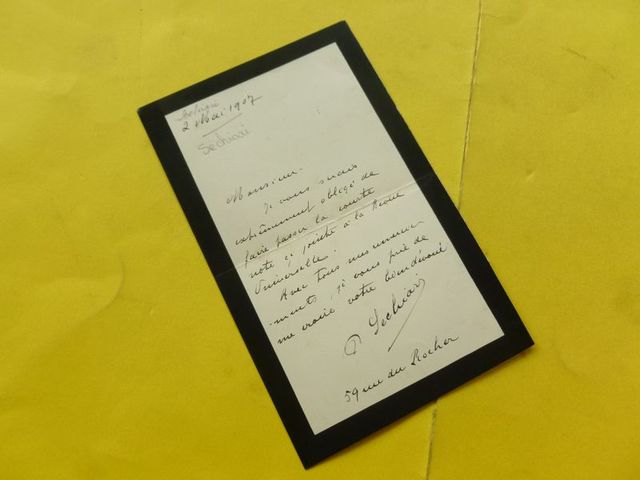 2 Mai 1907
Sechiari
Monsieur.
Je vous serais
extrêmement obligé de
faire passer la courte
note ci jointe à la Revue
Universelle.
Avec tous mes remerci
-ments, je vous prie de
me croire votre bien dévoué
P Sechiari
59 rue du Rocher